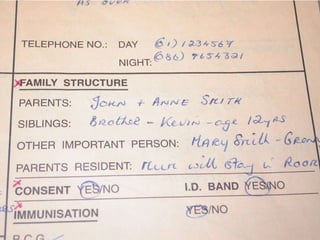 AS OVER
TELEPHONE NO.: DAY (61) 1234567
NIGHT: (086) 7654321
FAMILY STRUCTURE
PARENTS: JOHN + ANNE SMITH
SIBLINGS: Brother - KEVIN - age 12yrs
OTHER IMPORTANT PERSON: MARY Smith - Gran
PARENTS RESIDENT: Mum will stay in ROOM
CONSENT YES/NO I.D. BAND YES/NO
IMMUNISATION YES/NO
B.C.G.